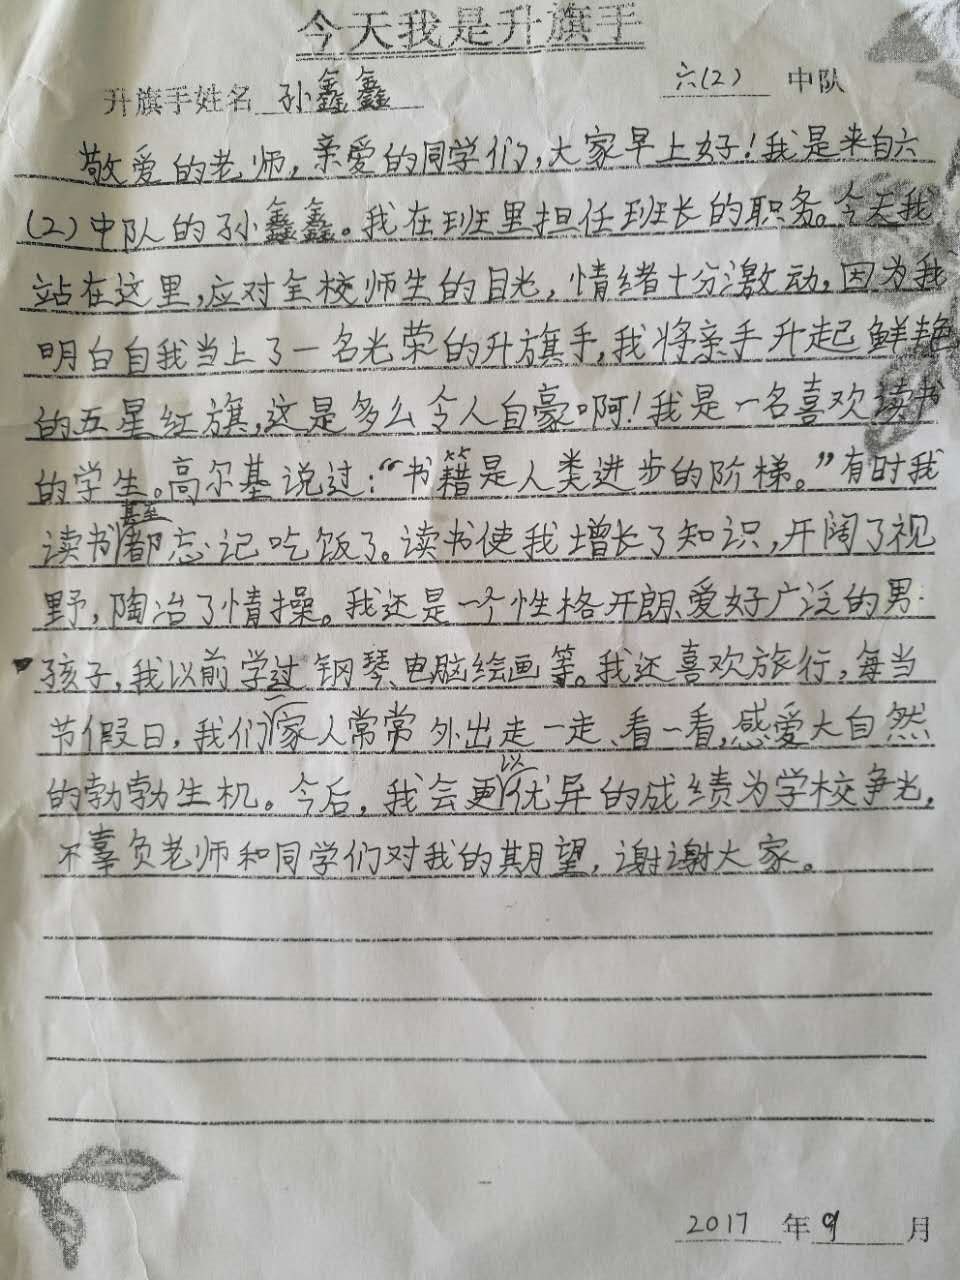 今天我是升旗手
升旗手姓名 孙鑫鑫 六(2) 中队
敬爱的老师,亲爱的同学们,大家早上好!我是来自六
(2)中队的孙鑫鑫。我在班里担任班长的职务。今天我
站在这里,应对全校师生的目光,情绪十分激动,因为我
明白自我当上了一名光荣的升旗手,我将亲手升起鲜艳
的五星红旗,这是多么令人自豪啊!我是一名喜欢读书
的学生。高尔基说过:“书籍是人类进步的阶梯。”有时我
读书甚至都忘记吃饭了。读书使我增长了知识,开阔了视
野,陶冶了情操。我还是一个性格开朗、爱好广泛的男
孩子,我以前学过钢琴、电脑绘画等。我还喜欢旅行,每当
节假日,我们一家人常常外出走一走、看一看,感爱大自然
的勃勃生机。今后,我会更以优异的成绩为学校争光,
不辜负老师和同学们对我的期望,谢谢大家。
2017 年 9 月